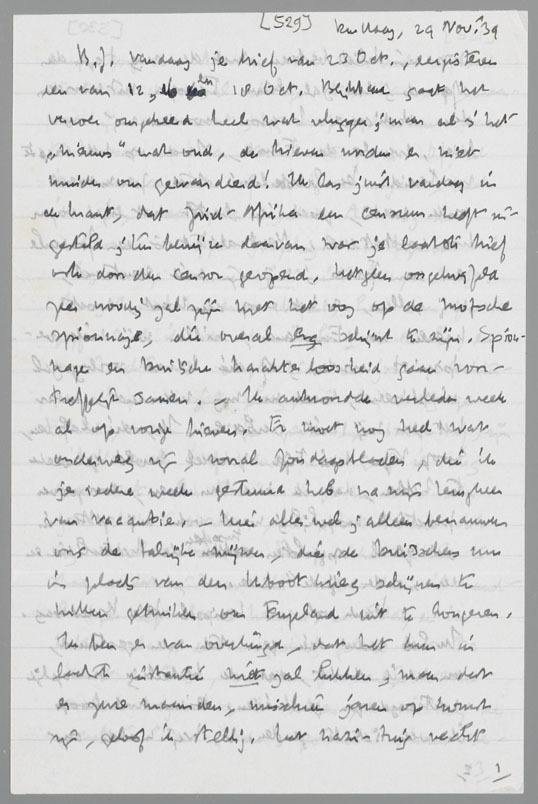 [529] den Haag, 29 Nov. '39
B.J. Vandaag je brief van 23 Oct., eergisteren
een van 12, en 18 Oct. Blijkbaar gaat het
vervoer omgekeerd heel wat vlugger; maar al is het
„nieuws" wat oud, de brieven worden er niet
minder om gewaardeerd! Ik las juist vandaag in
de krant, dat Zuid-Afrika een censuur heeft in-
gesteld; ten bewijze daarvan was je laatste brief
ook door den censor geopend, hetgeen ongetwijfeld
zeer noodig zal zijn met het oog op de mofsche
spionnage, die overal erg schijnt te zijn. Spion-
nage en Duitsche karakterloosheid gaan voor-
treffelijk samen. – Ik antwoordde verleden week
al op vorige brieven. Er moet nog heel wat
onderweg zijn, vooral Zondagsbladen, die ik
je iedere week gestuurd heb na mijn terugkeer
van vacantie. – Hier alles wel; alleen benauwen
ons de talrijke mijnen, die de Duitschers nu
in plaats van den U-boot krieg schijnen te
willen gebruiken om Engeland uit te hongeren.
Ik ben er van overtuigd, dat het hun in
laatste instantie niet zal lukken; maar dat
er zware maanden, misschien jaren op komst
zijn, geloof ik stellig. Het nazi-tuig vecht
1